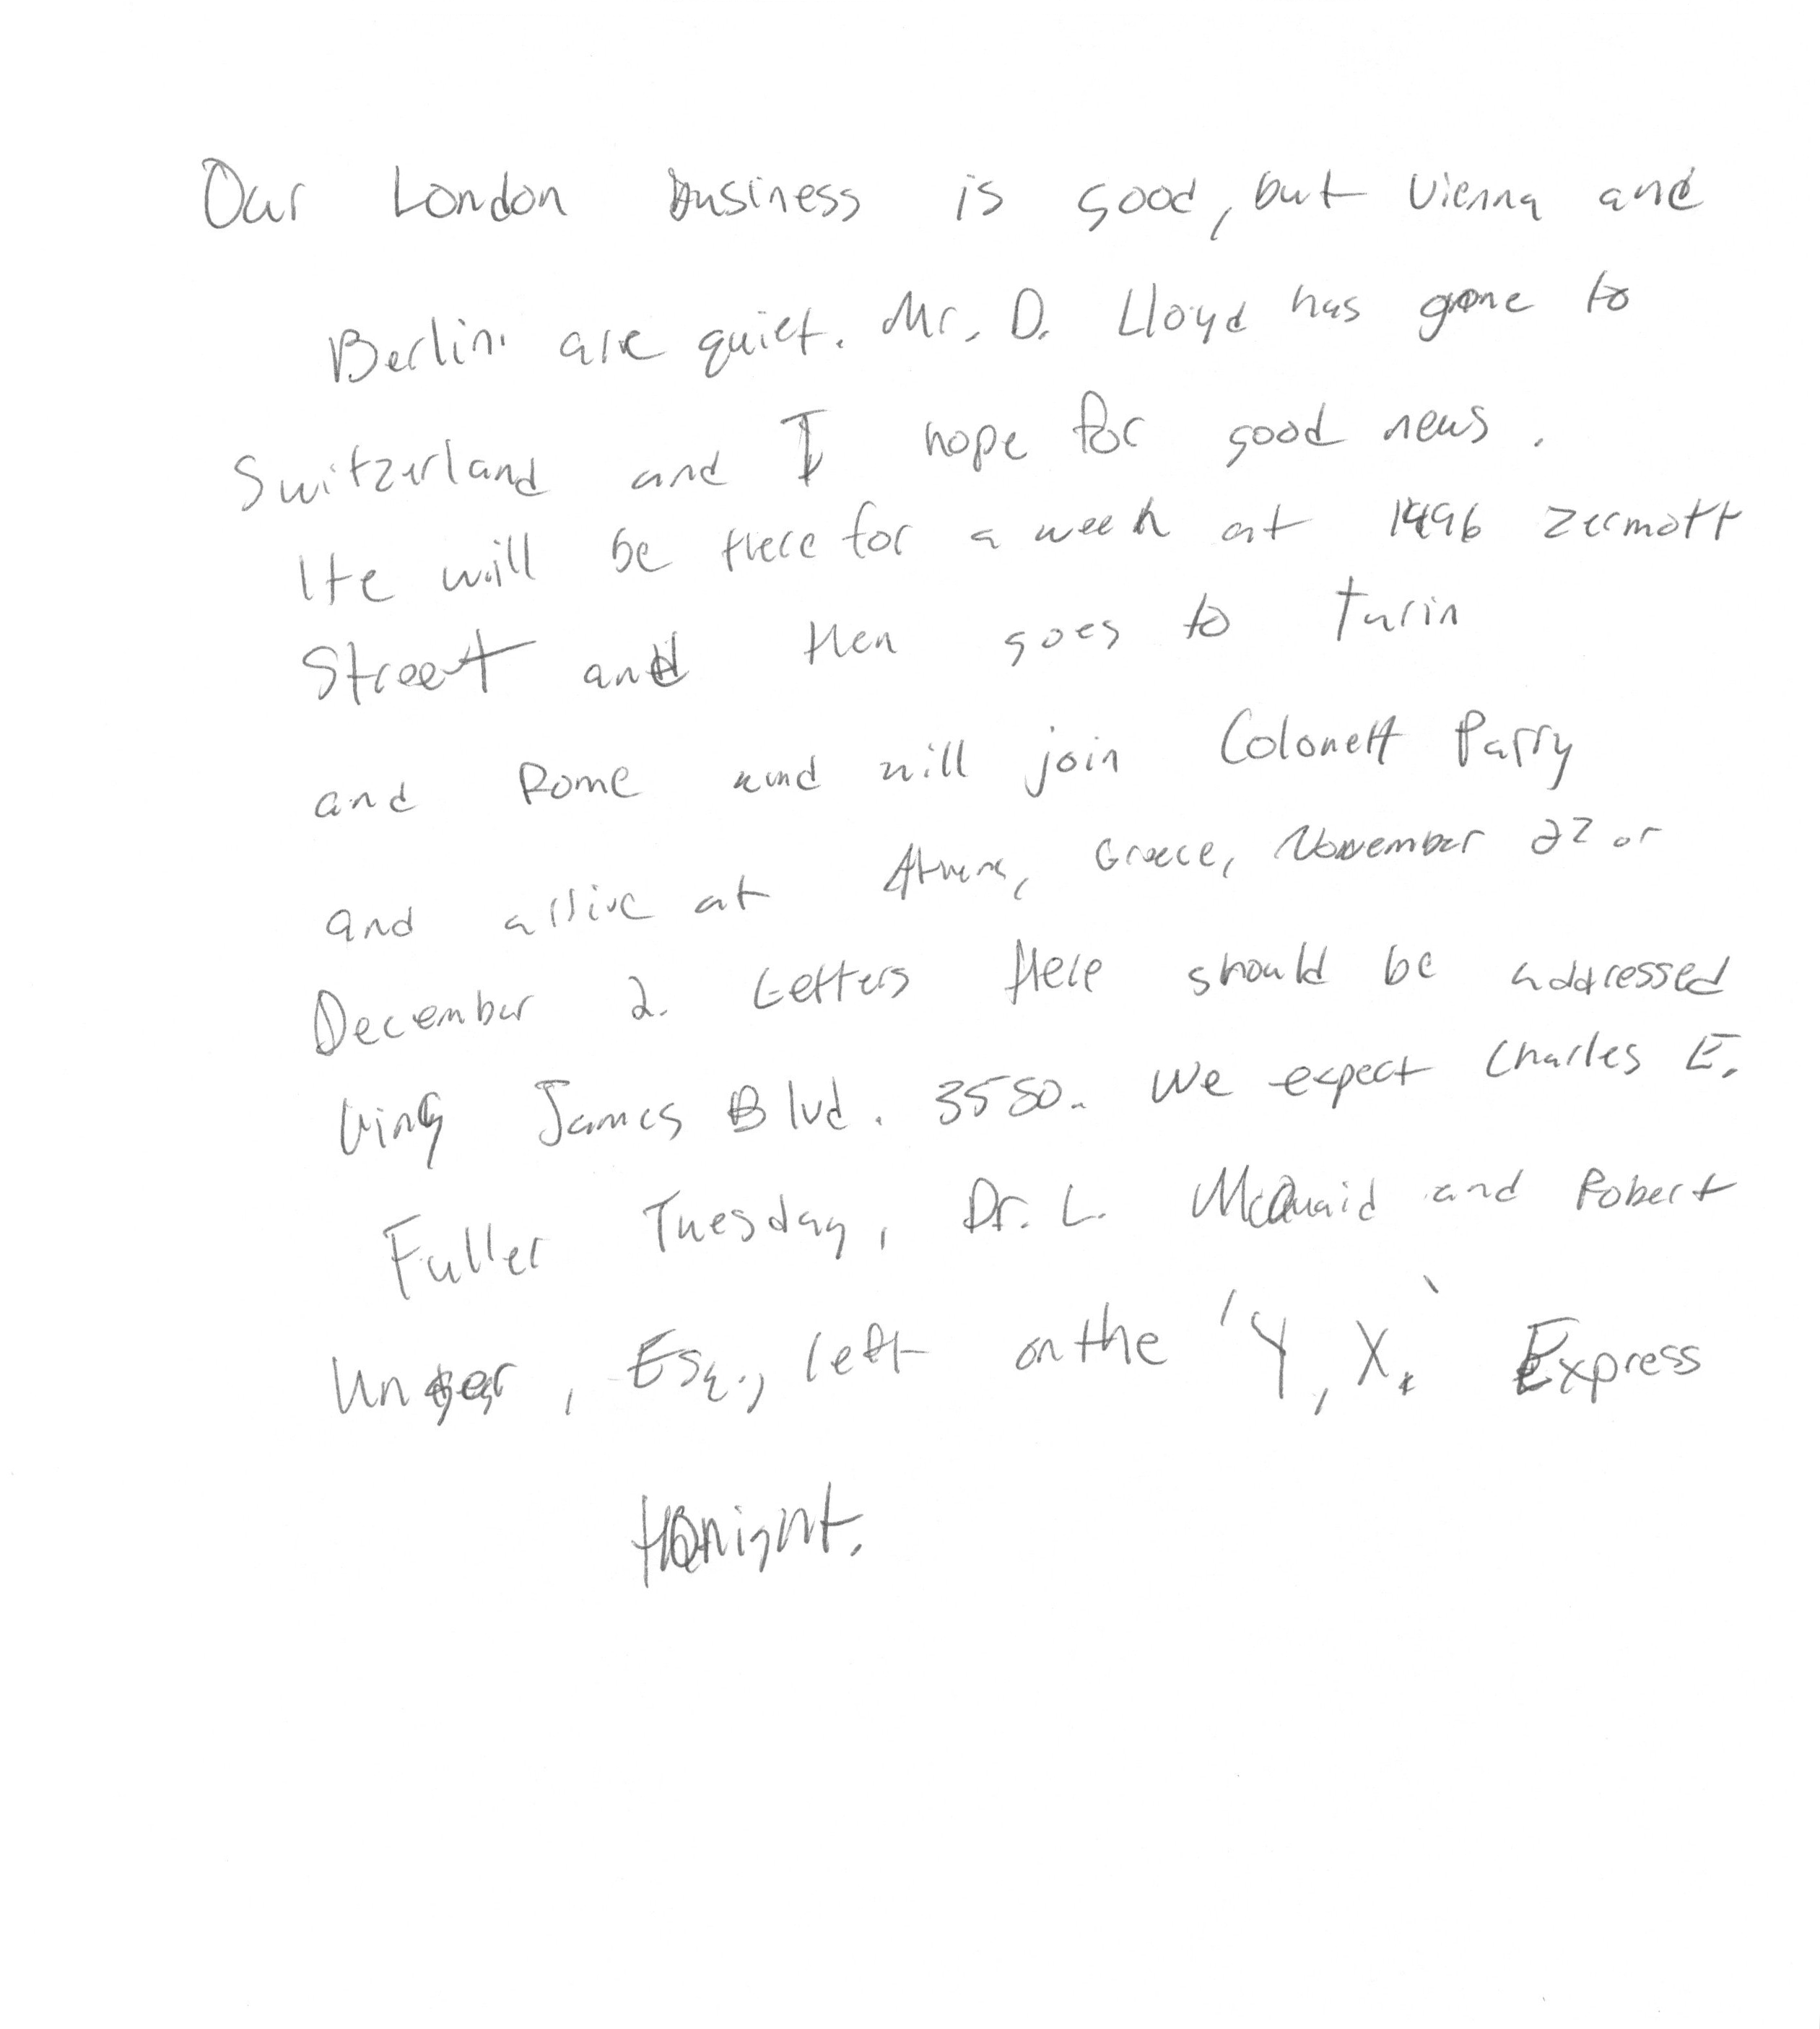 Our London business is good, but Vienna and
Berlin are quiet. Mr. D. Lloyd has gone to
Switzerland and I hope for good news.
He will be there for a week at 1496 Zermott
Street and then goes to Turin
and Rome and will join Colonell Parry
and arrive at Athens, Greece, November 27 or
December 2. Letters there should be addressed
King James Blvd. 3580. We expect Charles E.
Fuller Tuesday, Dr. L. McQuaid and Robert
Unger, Esq., left on the 'Y, X.' Express
tonight.